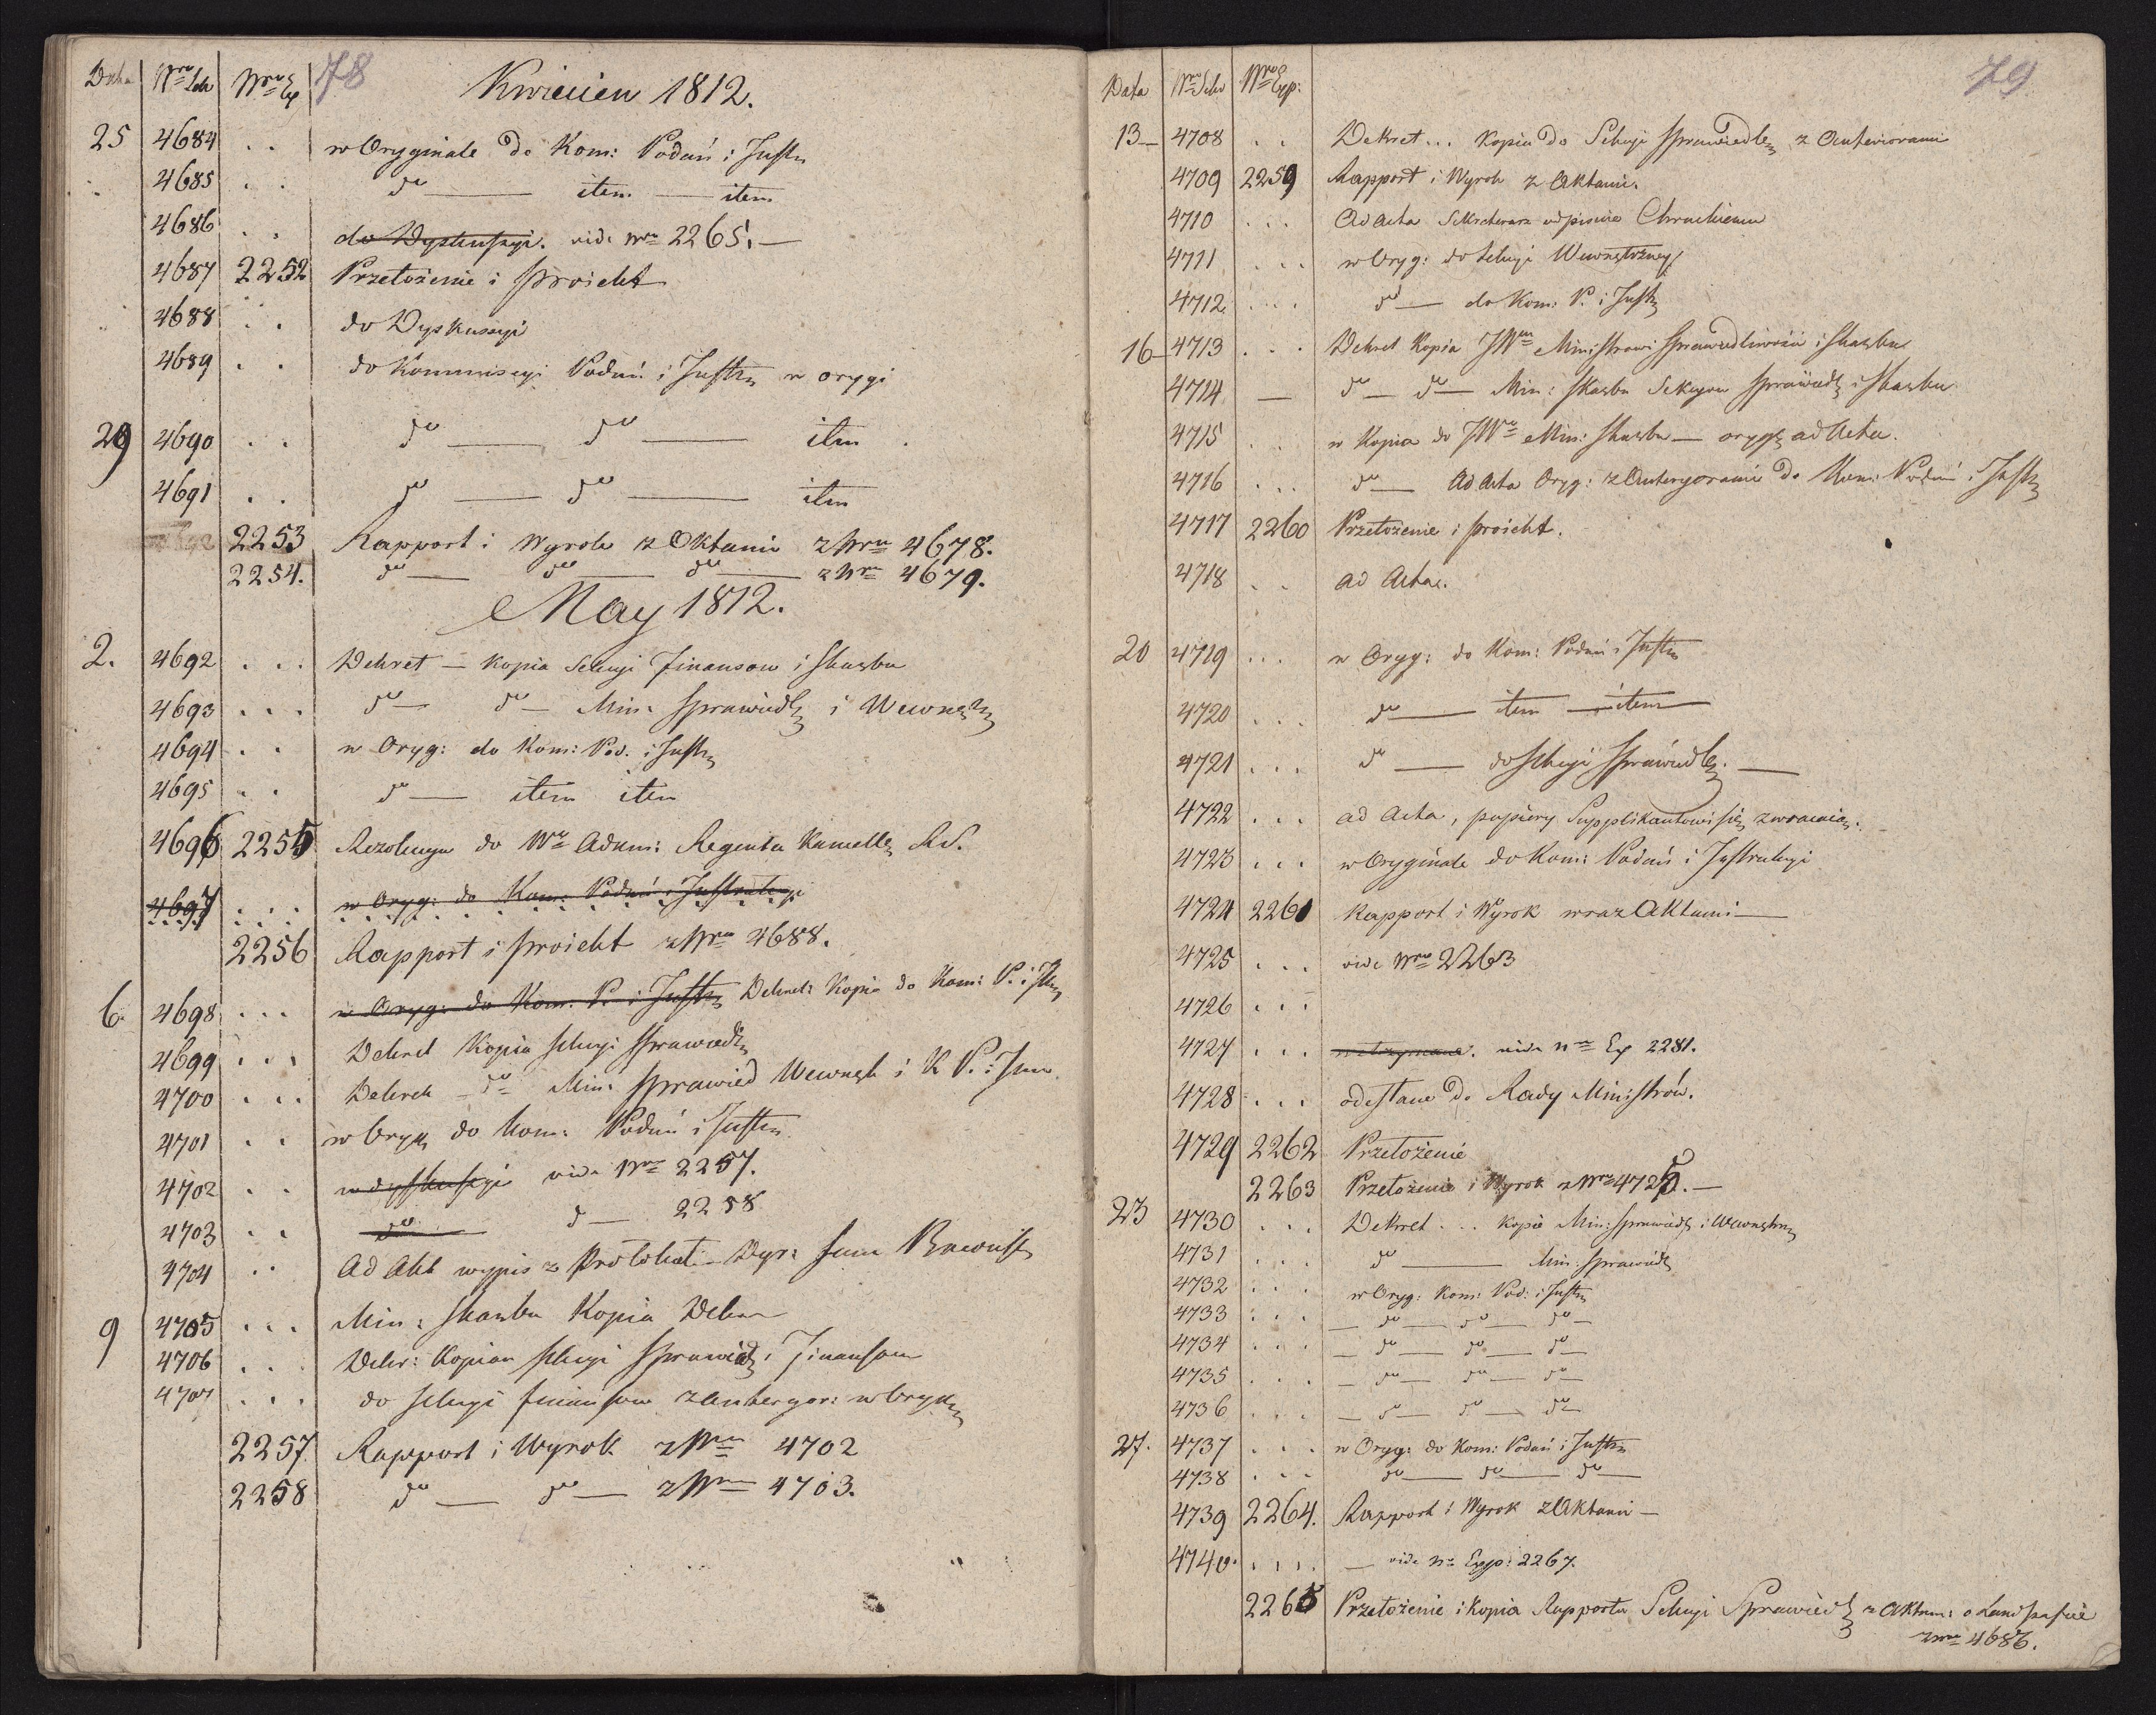 78
Data Nro Sek Nro Ex Kwiecien 1812.
25 4684 . . w Oryginale do Kom: Podań i Instr
4685 . . do — item — item
4686 . . do Dyskussyi. vide Nro 2265. —
4687 2252 Przełożenie i Proiekt
4688 . . do Dyskussyi
4689 . . do Kommissyi Podań i Instr w orygi
29 4690 . . do — do — item
4691 . . do — do — item
2253 Rapport i Wyrok z Aktami z Nru 4678.
2254. do — do — do — z Nru 4679.
May 1812.
2. 4692 . . . Dekret — Kopia Sekcyi Finansow i Skarbu
4693 . . . do — do — Min: Sprawiedl i Wewnętrz
4694 . . w Oryg: do Kom: Pod: i Instr
4695 . . do — item item
4696 2255 Rezolucya do Wo Adam: Regenta
4697 . . . w Oryg: do Kom: Podań i Instrukcyi
2256 Rapport i Proiekt z Nru 4688.
6. 4698 . . . w Oryg: do Kom: P. i Instr Dekret: Kopia do Kom: P. i Instr
4699 . . . Dekret Kopia Sekcyi Sprawiedl
4700 . . . Dekret — do — Min: Sprawied Wewnętr i K. P. i Instr
4701 . . w Oryg do Kom: Podań i Instr
4702 . . w dyskussyi vide Nro 2257.
4703 . . do — do — 2258
4704 . . Ad Akt wypis z Protokół: Dyr:
9 4705 . . . Min: Skarbu Kopia Dekr
4706 . . . Dekr: Kopia Sekcyi Sprawied i Finansow
4707 . . . do Sekcyi Finansow z Antergor: w Oryg
2257 Rapport i Wyrok z Nru 4702
2258 do — do — z Nru 4703.
79
Data Nro Sek Nro Exp:
13 — 4708 . . Dekret... Kopia do Sekcyi Sprawiedl z Anteriorami
4709 2259 Rapport i Wyrok z Aktami.
4710 . . . Ad Acta Sekretarz odpisuie
4711 . . . w Oryg: do Sekcyi Wewnętrzney
4712. . . . do — do Kom: P. i Instr
16 — 4713 . . . Dekret Kopia JWm Ministrowi Sprawiedliwości i Skarbu
4714 — do — do — Min: Skarbu Sekcyom Sprawiedl i Skarbu
4715 . . w Kopia do JWo Min: Skarbu — oryg ad Acta.
4716 . . . do — Ad Acta Oryg: z Antergorami do Kom: Podań i Instr
4717 2260 Przełożenie i proiekt.
4718 . . ad Acta.
20 4719 . . . w Oryg: do Kom: Podań i Instr
4720 . . . do — item — item
4721 . . . do — do Sekcyi Sprawiedl. —
4722 . . . ad Acta, papiery Supplikantowi się zwracaią.
4723 . . . w Oryginale do Kom: Podań i Instrukcyi
4724 2261 Rapport i Wyrok wraz Aktami —
4725 . . . vide Nro 2263
4726 . . .
4727 . . . wstrzymane. vide nro Ex 2281.
4728 . . . odesłane do Rady Ministrów.
4729 2262 Przełożenie
2263 Przełożenie i Wyrok z Nro 4725. —
23 4730 . . . Dekret . . . kopie Min: Sprawiedl i Wewnętrzn
4731 . . . do — Min: Sprawiedl
4732 . . . w Oryg: Kom: Pod: i Instr
4733 . . . — do — do — do —
4734 . . . — do — do — do —
4735 . . . — do — do — do —
4736 . . . — do — do — do —
27. 4737 . . . w Oryg: do Kom: Podań i Instr
4738 . . . do — do — do —
4739 2264. Rapport i Wyrok z Aktami —
4740. . . . . — vide no Exp: 2267.
2265 Przełożenie i kopia Rapportu Sekcyi Sprawiedl z Aktam: o
z nru 4686.